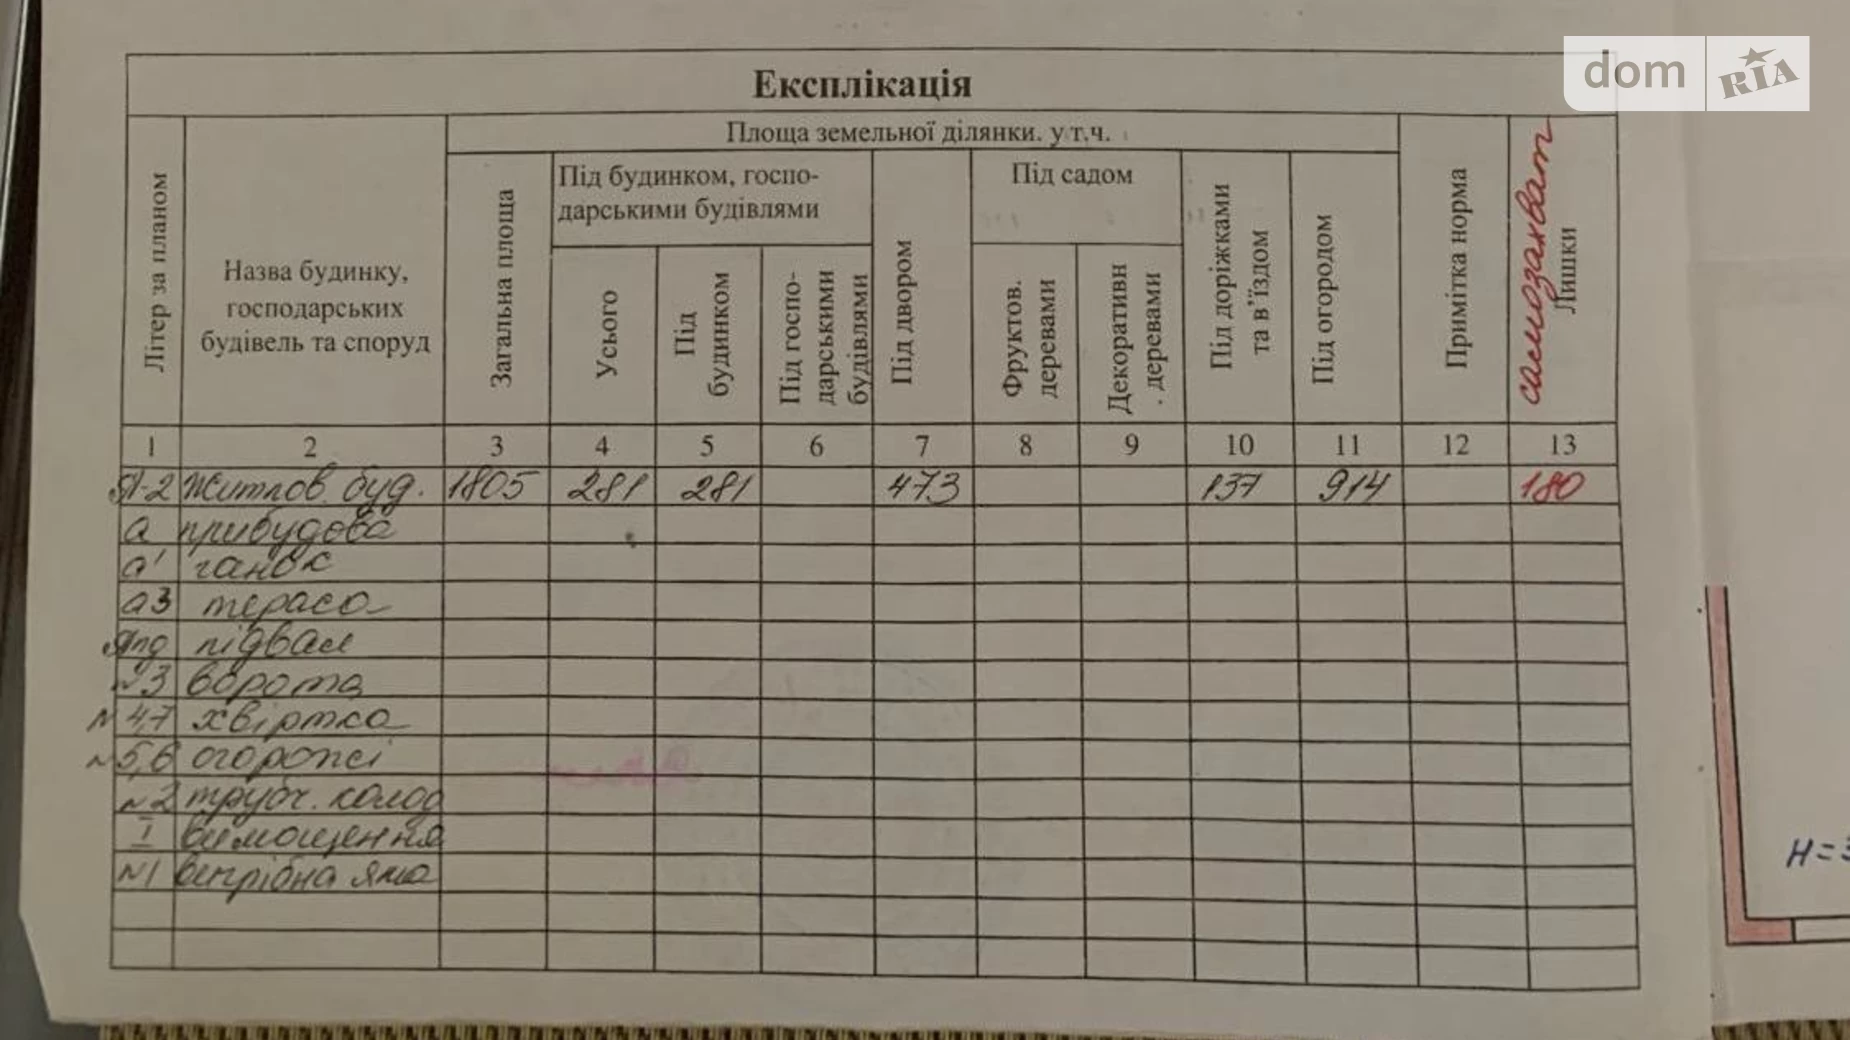 dom RIA
Експлікація
Площа земельної ділянки. у т.ч.
Літер за планом
Назва будинку,
господарських
будівель та споруд
Загальна площа
Під будинком, госпо-
дарськими будівлями
Усього
Під
будинком
Під госпо-
дарськими
будівлями
Під двором
Під садом
Фруктов.
деревами
Декоративн
. деревами
Під доріжками
та в'їздом
Під огородом
Примітка норма
самозахват
Лишки
1 2 3 4 5 6 7 8 9 10 11 12 13
А-2 Житлов. буд. 1805 281 281 473 137 914 180
а прибудова
а' ганок
а3 тераса
Апд підвал
№3 ворота
№4,7 хвіртка
№5,6 огорожі
№2 трубч. колод
I вимощення
№1 вигрібна яма
H=3